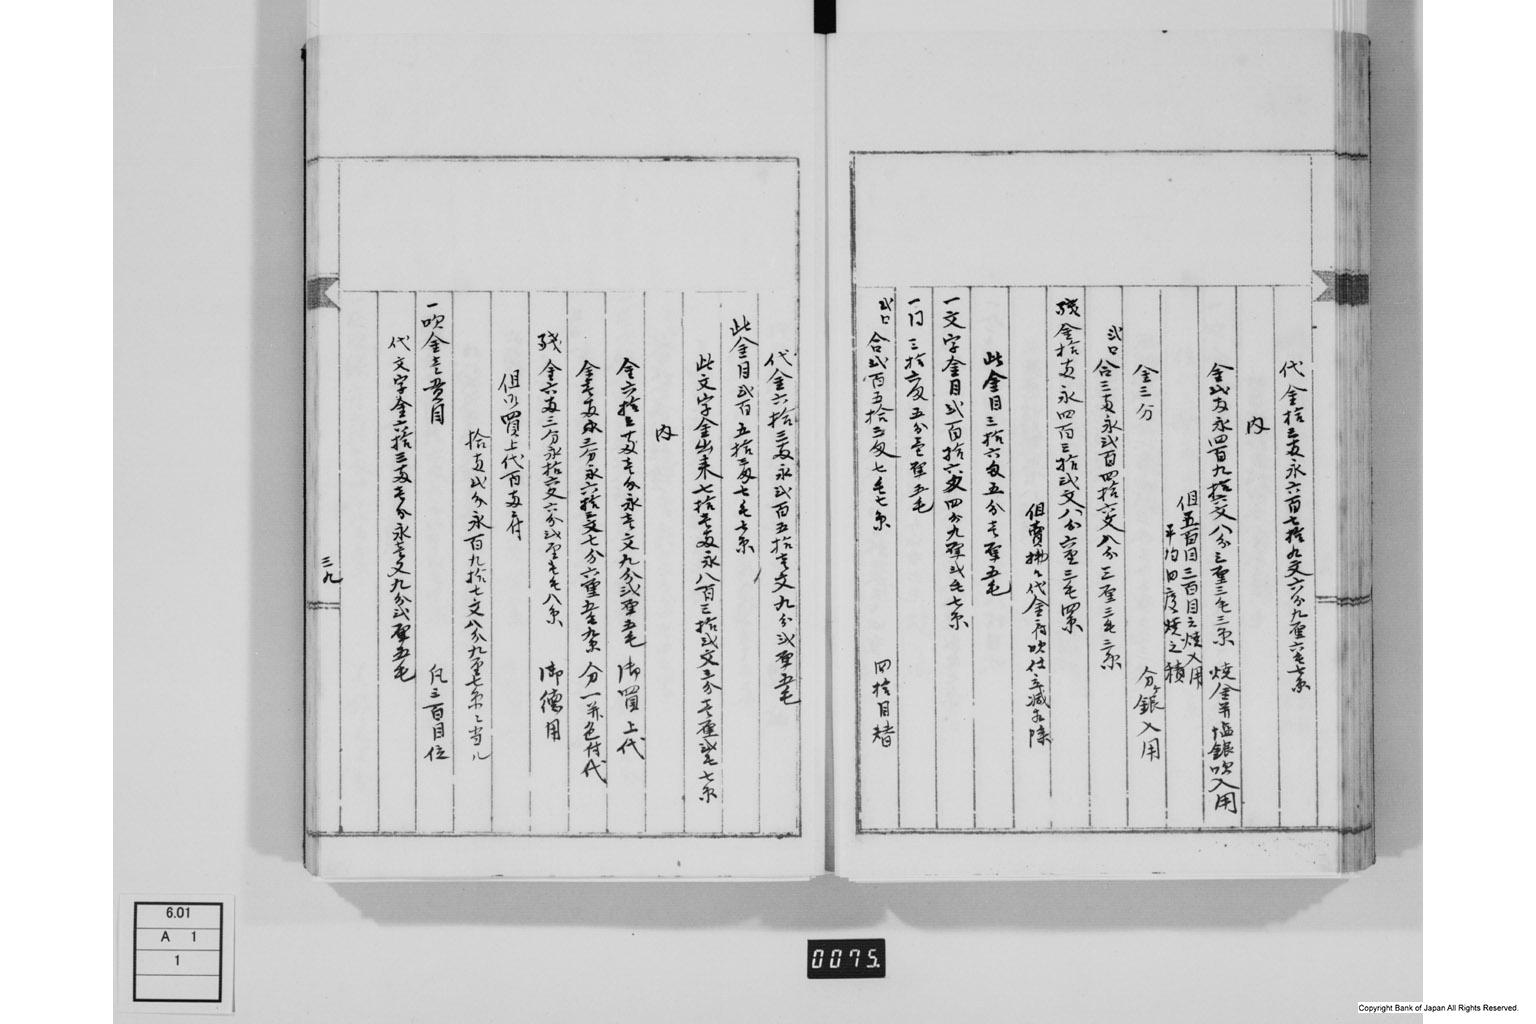 代金拾三両永六百七拾九文六分九厘六毛七糸
内
金弐両永四百九拾六文八分三厘三毛三糸 焼金并塩銀吹入用
但五百目三百目之焼入用
平均四度焼之積
金三分 分ヶ銀入用
弐口合三両永弐百四拾六文八分三厘三毛三糸
残金拾両永四百三拾弐文八分六厘三毛四糸
但費掛り代金府吹仕立減 除
此金目三拾六匁五分壱厘五毛
一文字金目弐百拾六匁四分九厘弐毛七糸
一同三拾六匁五分壱厘五毛
弐口合弐百五拾三匁七毛七糸 四拾目替
代金六拾三両永弐百五拾壱文九分弐厘五毛
此金目弐百五拾三匁七毛七糸
此文字金出来七拾壱両永八百三拾弐文三分壱厘弐毛七糸
内
金六拾三両壱分永壱文九分弐厘五毛 御買上代
金壱両三分永六拾三文七分六厘五毛九糸 分一并色付代
残金六両三分永拾六文六分弐厘壱毛八糸 御徳用
但御買上代百両ニ付
拾両弐分永百九拾七文八分九厘七糸ニ当ル
一吹金壱貫目 凡三百目位
代文字金六拾三両壱分永壱文九分弐厘五毛
三九
6.01
A 1
1
0075.
Copyright Bank of Japan All Rights Reserved.